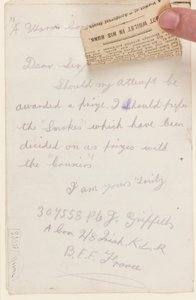 "A Worm's
EAST WHILST IN HIS BUNK.
Dear Sir,
Should my attempt be
awarded a prize, I should prefer
the "Smokes" which have been
decided on as prizes with
the "Couriers".
I am yours truly
307558 Pte J. Griffiths
A Coy 2/8 Irish K.L.R
B.E.F. France